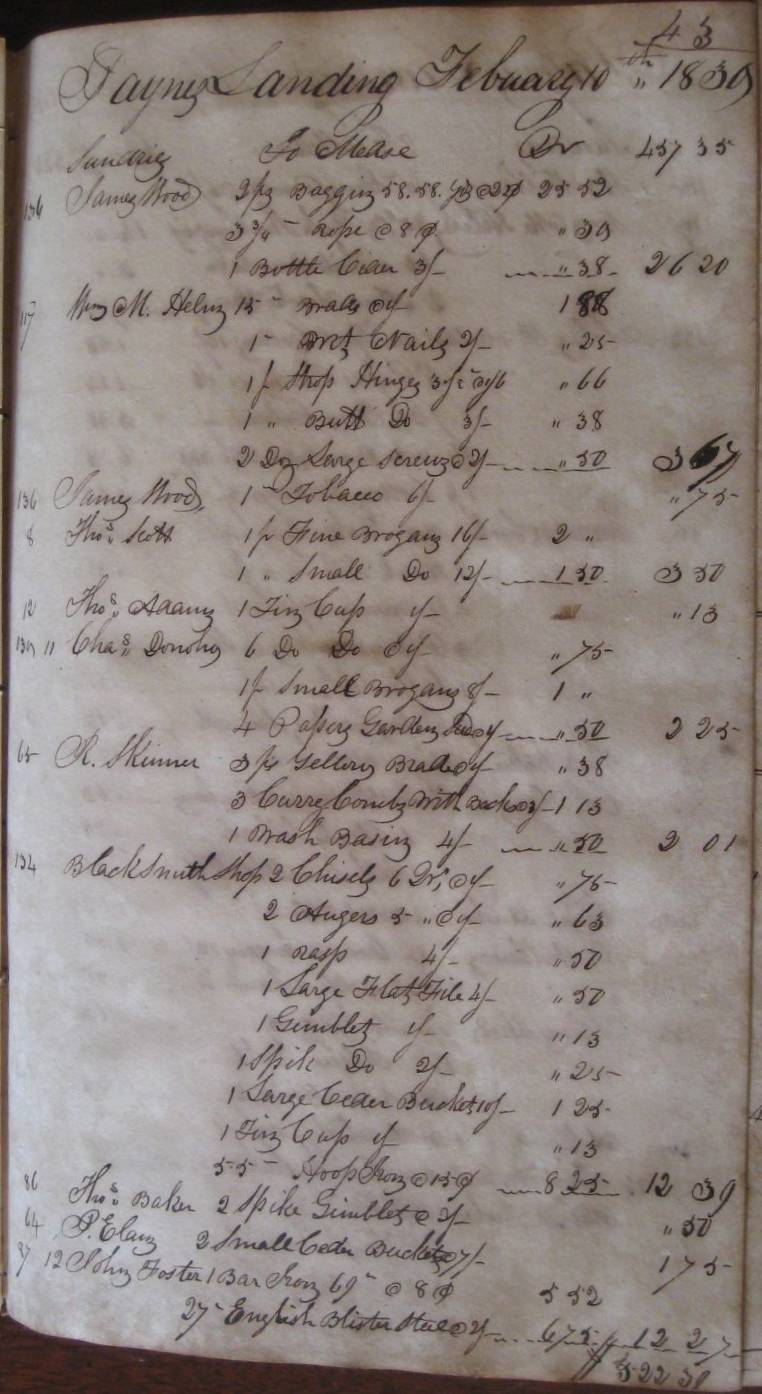 43
Paynes Landing Febuary 10th " 1839
Sundries To Mdse Dr 457 35
136 James Wood 3 ps Bagging 58. 58. @ 2 25 52
3 3/4 " Rope @ 8 ¢ " 30
1 Bottle Ceder 3/- " 38 26 20
117 Wm M. Helm 15 " Brads @ 1/- 1 88
1 " Brot Nails 2/- " 25
1 p Strop Hinges " 66
1 " Butt Do 3/- " 38
2 Doz Large Screws @ 2/- " 50 3 67
136 James Wood 1 " Tobacco 6/- " 75
8 Thos. Scott 1 p Fine Brogans 16/- 2 "
1 " Small Do 12/- 1 50 3 50
12 Thos. Adams 1 Tin Cup 1/- " 13
139 11 Chas. Donohy 6 Do Do @ 1/- " 75
1 p Small Brogans 8/- 1 "
4 Papers Garden Seed @ 1/- " 50 2 25
65 R. Skinner 3 ps Gallery Brade @ 1/- " 38
3 Curry Combs With Backs @ 3/- 1 13
1 Wash Basin 4/- " 50 2 01
134 BlackSmith Shop 2 Chisels 6 Qrs @ 1/- " 75
2 Augers 5 " @ 1/- " 63
1 Rasp 4/- " 50
1 Large Flat File 4/- " 50
1 Gimblet 1/- " 13
1 Spik Do 2/- " 25
1 Large Ceder Bucket 10/- 1 25
1 Tin Cup 1/- " 13
55 " Hoop Iron @ 15 ¢ 8 25 12 39
86 Thos. Baker 2 Spike Gimblets @ 2/- " 50
64 P. Elam 2 Small Ceder Buckets @ 7/- 1 75
87 12 John Foster 1 Bar Iron 69 " @ 8 ¢ 5 52
27 " English Blister Steel @ 2/- 6 75 12 27
$522 39